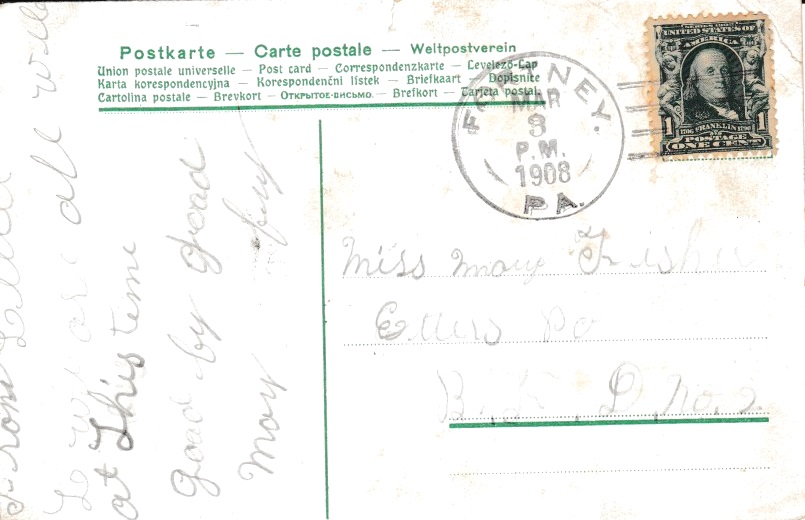 Postkarte — Carte postale — Weltpostverein
Union postale universelle — Post card — Correspondenzkarte — Levelező-Lap
Karta korespondencyjna — Korespondenční lístek — Briefkaart — Dopisnite
Cartolina postale — Brevkort — Открытое письмо — Brefkort — Tarjeta postal.
MAR
3
P.M.
1908
PA.
SERIES 1902
UNITED STATES OF
AMERICA
1 FRANKLIN 1
POSTAGE
ONE CENT
Miss Mary Fisher
Etters Po
R. F. D. No. 2.
From
we are all well
at this time
goad by goad
may